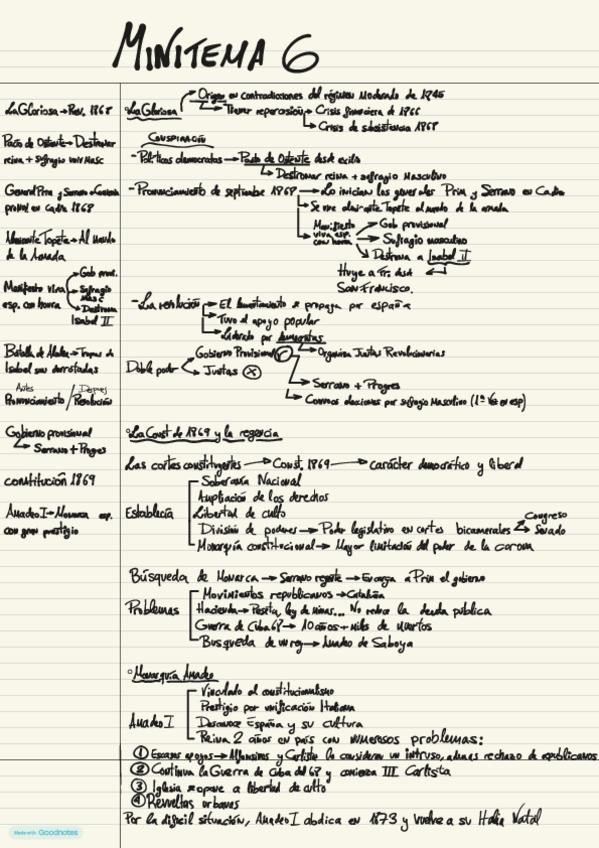 MINITEMA 6
La Gloriosa → Rev. 1868
Pacto de Ostente → Destronar
reina + sufragio univ Masc
General Prim y Serrano →
en Cadiz 1868
Almirante Topete → Al Mando
de la Armada
Manifiesto viva
esp. con honra
Gob prov.
Sufragio
Masc
Destrona
Isabel II
Batalla de → Tropas de
Isabel son derrotadas
Antes Despues
Pronunciamiento / Revolución
Gobierno provisional
→ Serrano + Progres
constitución 1869
Amadeo I → Monarca esp.
con gran prestigio
La Gloriosa
Origen en contradicciones del régimen Moderado de 1845
Tener repercusión → Crisis financiera de 1866
→ Crisis de subsistencia 1868
CONSPIRACIÓN
- Políticos democratas → Pacto de Ostente desde exilio
→ Destronar reina + sufragio Masculino
- Pronunciamiento de septiembre 1868 → Lo inician los generales Prim y Serrano en Cadiz
→ Se une almirante Topete al mando de la armada
→ Manifiesto
viva esp.
con honra
Gob provisional
Sufragio masculino
Destrona a Isabel II
Huye a Fr. desde
SAN FRANCISCO.
- La revolución
→ El levantamiento se propaga por españa
→ Tuvo el apoyo popular
→ Liderado por demócratas
Doble poder
Gobierno Provisional
→ Organiza Juntas Revolucionarias
→ Juntas X
→ Serrano + Progres
→ Convoca elecciones por sufragio Masculino (1ª Vez en esp)
La Const de 1869 y la regencia
Las cortes constituyentes → Const. 1869 → carácter democrático y liberal
Establecía
Soberanía Nacional
Ampliación de los derechos
Libertad de culto
División de poderes → Poder legislativo en cortes bicamerales
Congreso
Senado
Monarquía constitucional → Mayor limitación del poder de la corona
Búsqueda de Monarca → Serrano regente → Encarga a Prim el gobierno
Problemas
Movimientos republicanos → Cataluña
Hacienda → Peseta, ley de minas... No reduce la deuda pública
Guerra de Cuba 68 → 10 años + miles de muertos
Busqueda de un rey → Amadeo de Saboya
Monarquía Amadeo
Amadeo I
Vinculado al constitucionalismo
Prestigio por unificación Italiana
Desconoce España y su cultura
Reina 2 años en país con numerosos problemas:
1 Escasos apoyos → Alfonsinos y Carlistas lo consideran un intruso, además rechazo de republicanos
2 Continua la Guerra de Cuba del 68 y comienza III Carlista
3 Iglesia se opone a libertad de culto
4 Revueltas urbanas
Por la dificil situación, Amadeo I abdica en 1873 y vuelve a su Italia Natal
Made with Goodnotes